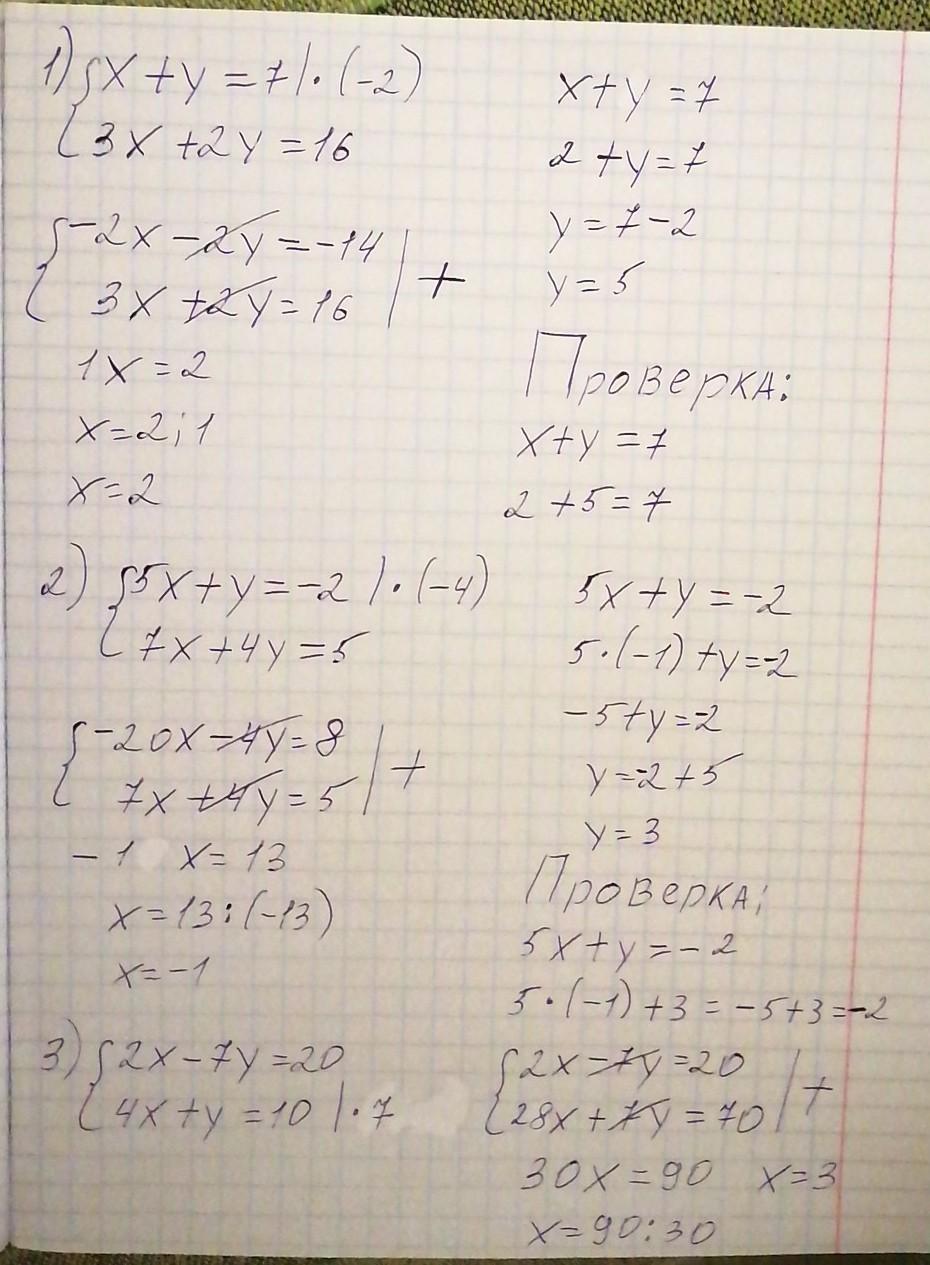 1) {x + y = 7 | · (-2)
3x + 2y = 16
{-2x - 2y = -14 | +
3x + 2y = 16
1x = 2
x = 2 : 1
x = 2
x + y = 7
2 + y = 7
y = 7 - 2
y = 5
Проверка:
x + y = 7
2 + 5 = 7
2) {5x + y = -2 | · (-4)
7x + 4y = 5
{-20x - 4y = 8 | +
7x + 4y = 5
- 1 x = 13
x = 13 : (-13)
x = -1
5x + y = -2
5 · (-1) + y = -2
-5 + y = -2
y = -2 + 5
y = 3
Проверка:
5x + y = -2
5 · (-1) + 3 = -5 + 3 = -2
3) {2x - 7y = 20
4x + y = 10 | · 7
{2x - 7y = 20 | +
28x + 7y = 70
30x = 90 x = 3
x = 90 : 30